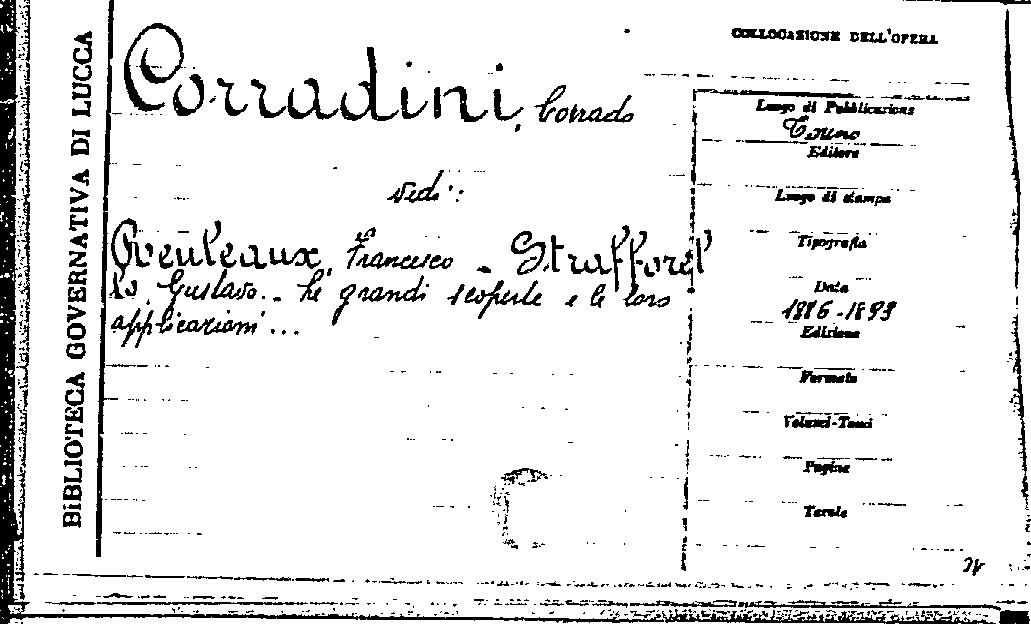 BIBLIOTECA GOVERNATIVA DI LUCCA
COLLOCAZIONE DELL'OPERA
Corradini, Corrado
vedi:
Reuleaux, Francesco - Strafforel
lo, Gustavo. - Le grandi scoperte e le loro
applicazioni...
Luogo di Pubblicazione
Torino
Editore
Luogo di stampa
Tipografia
Data
1886-1899
Edizione
Formato
Volumi-Tomi
Pagine
Tavole